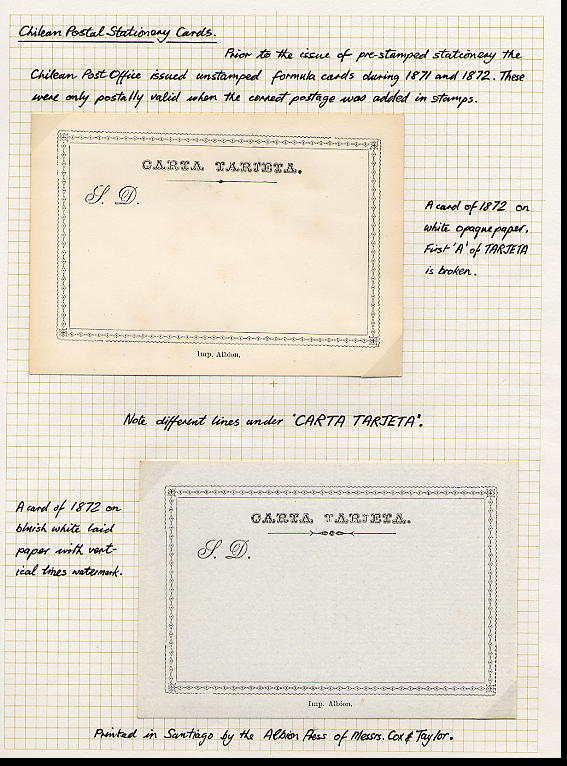 Chilean Postal Stationery Cards.
Prior to the issue of pre-stamped stationery the
Chilean Post Office issued unstamped formula cards during 1871 and 1872. These
were only postally valid when the correct postage was added in stamps.
CARTA TARJETA.
S. D.
Imp. Albion.
A card of 1872 on
white opaque paper.
First 'A' of TARJETA
is broken.
Note different lines under "CARTA TARJETA".
A card of 1872 on
bluish white laid
paper with vert-
ical lines watermark.
CARTA TARJETA.
S. D.
Imp. Albion.
Printed in Santiago by the Albion Press of Messrs. Cox & Taylor.